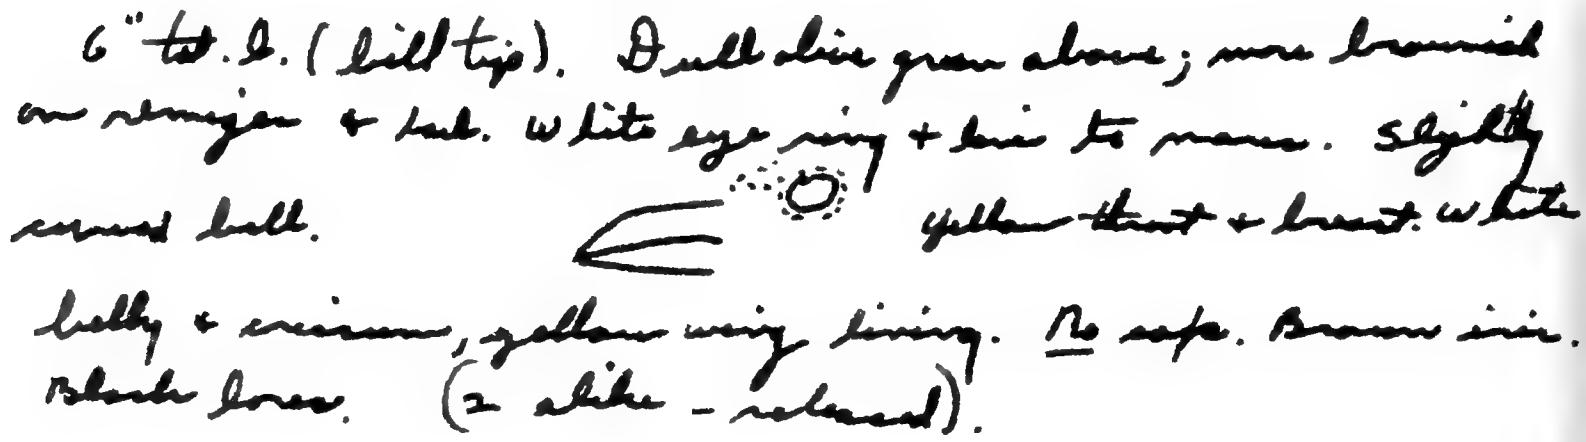 6" tot. l. (bill tip). Dull olive green above; more brownish
on remiges + tail. White eye ring + line to nares. Slightly
curved bill. yellow throat + breast. White
belly + crissum, yellow wing lining. No safe. Brown iris.
Black lores. (2 alike - released).